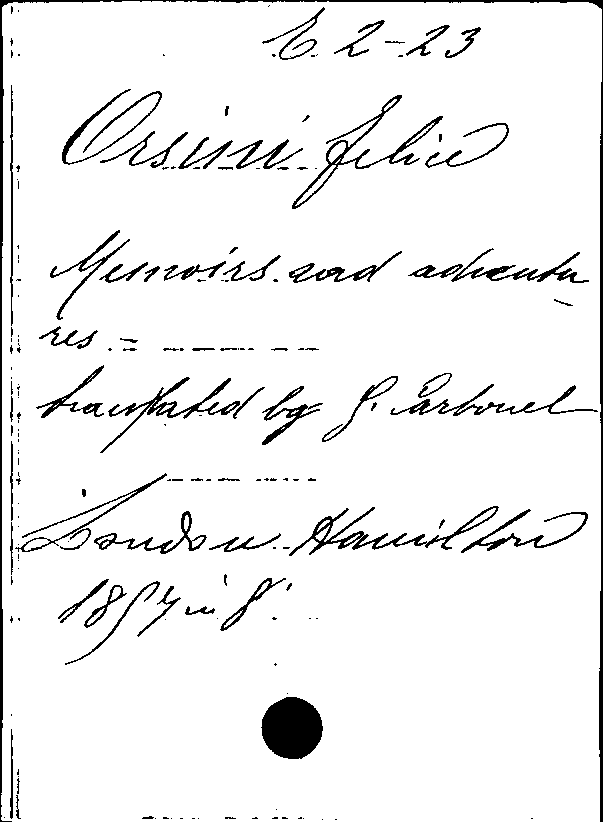 E. 2-23
Orsini Felice
Memoirs and adventu
res -
translated by G. Carbonel
London Hamilton
1857 in 8°.